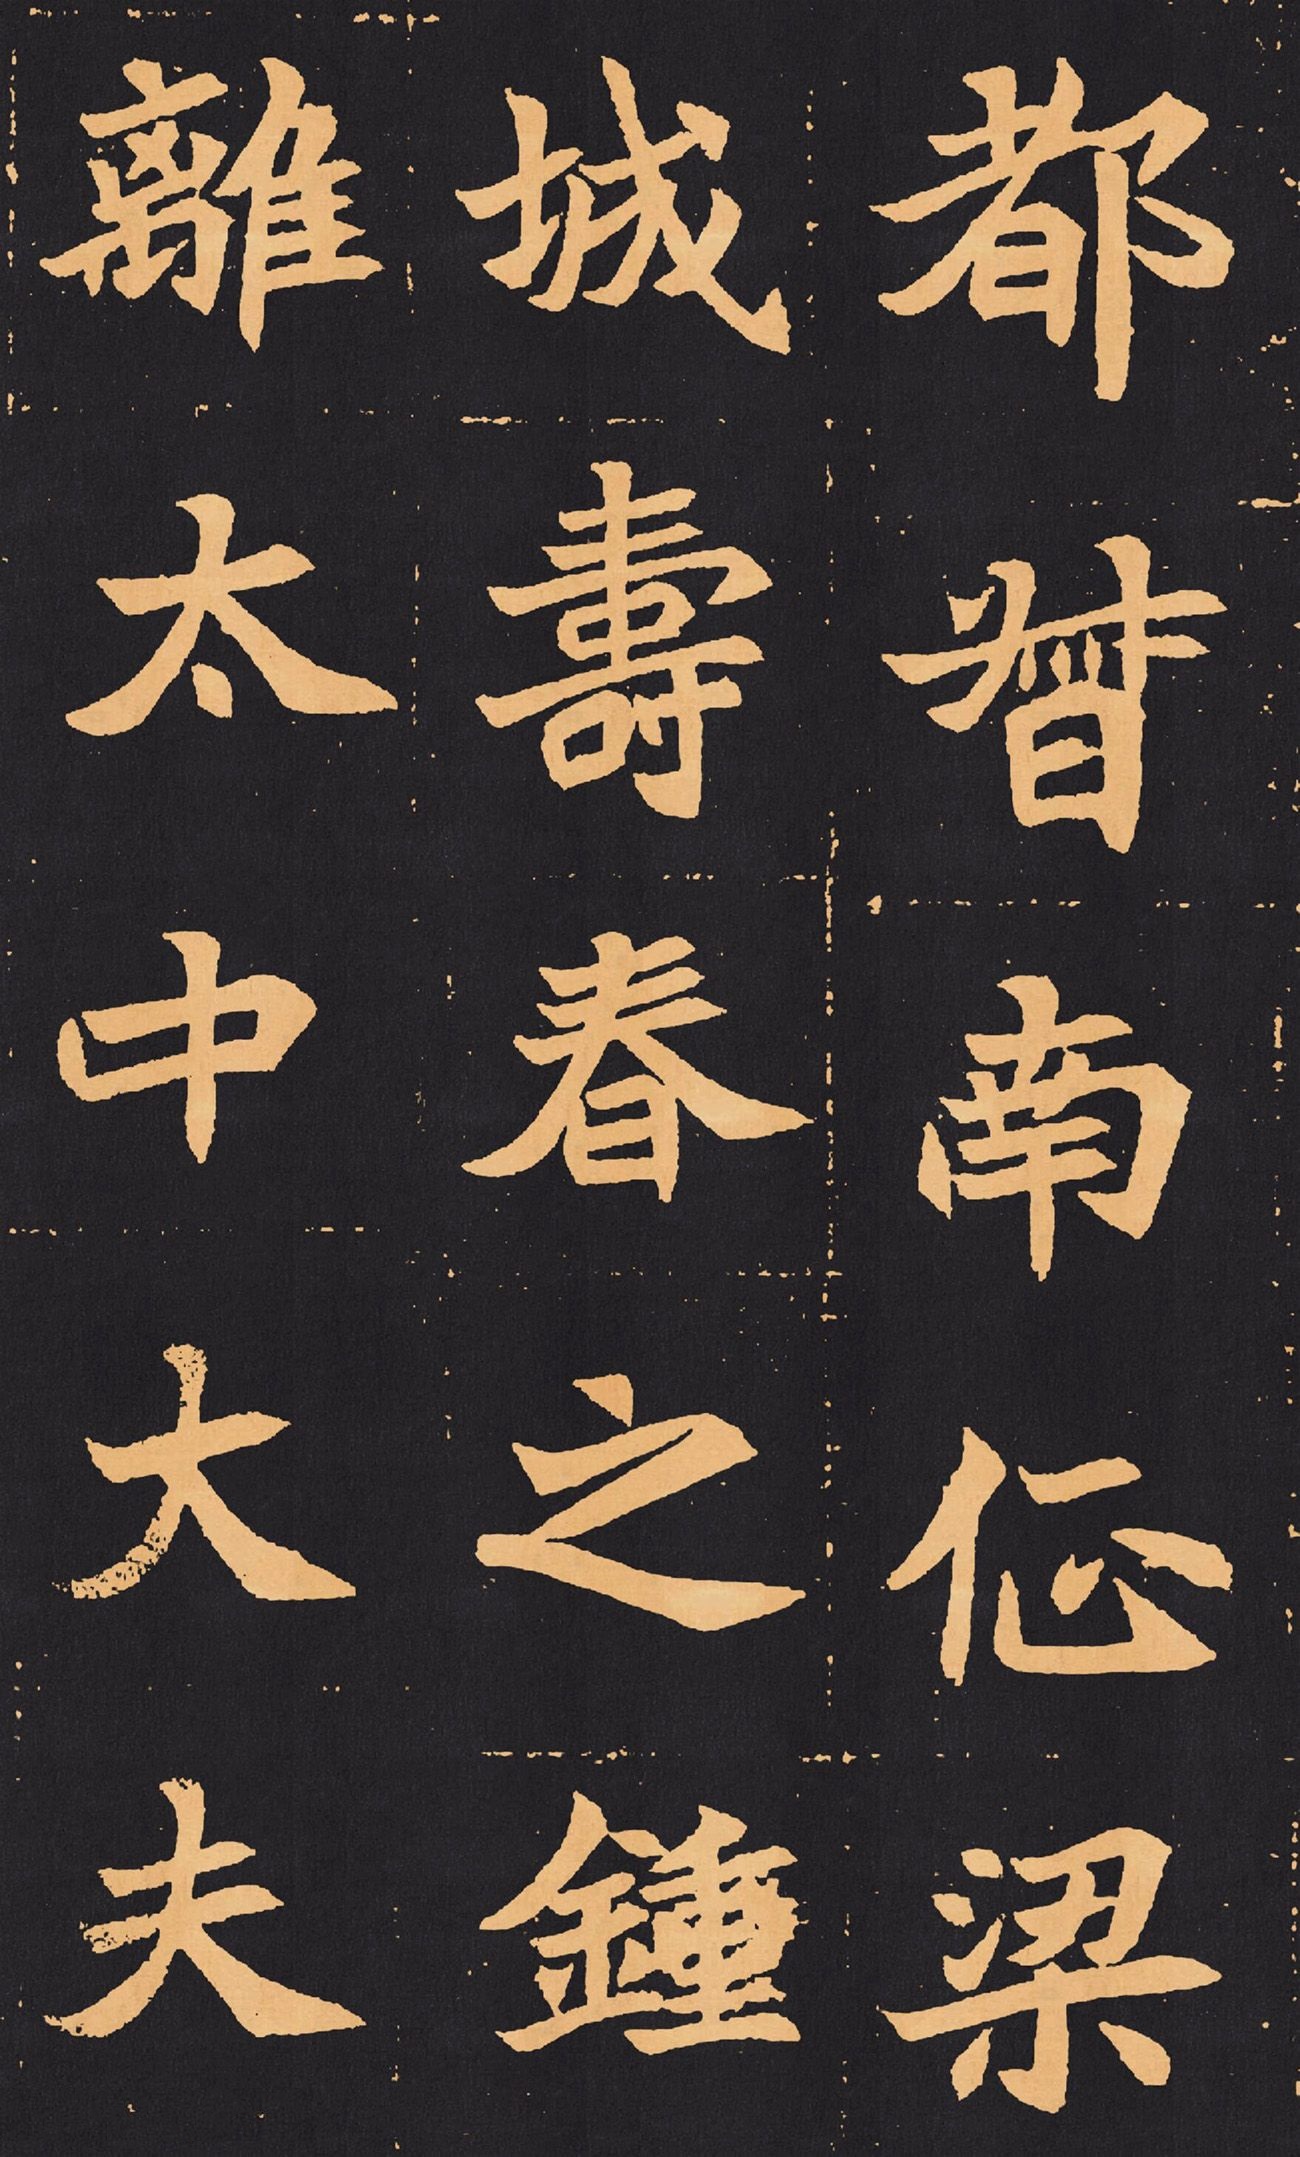 都督南征梁
城壽春之鍾
離太中大夫